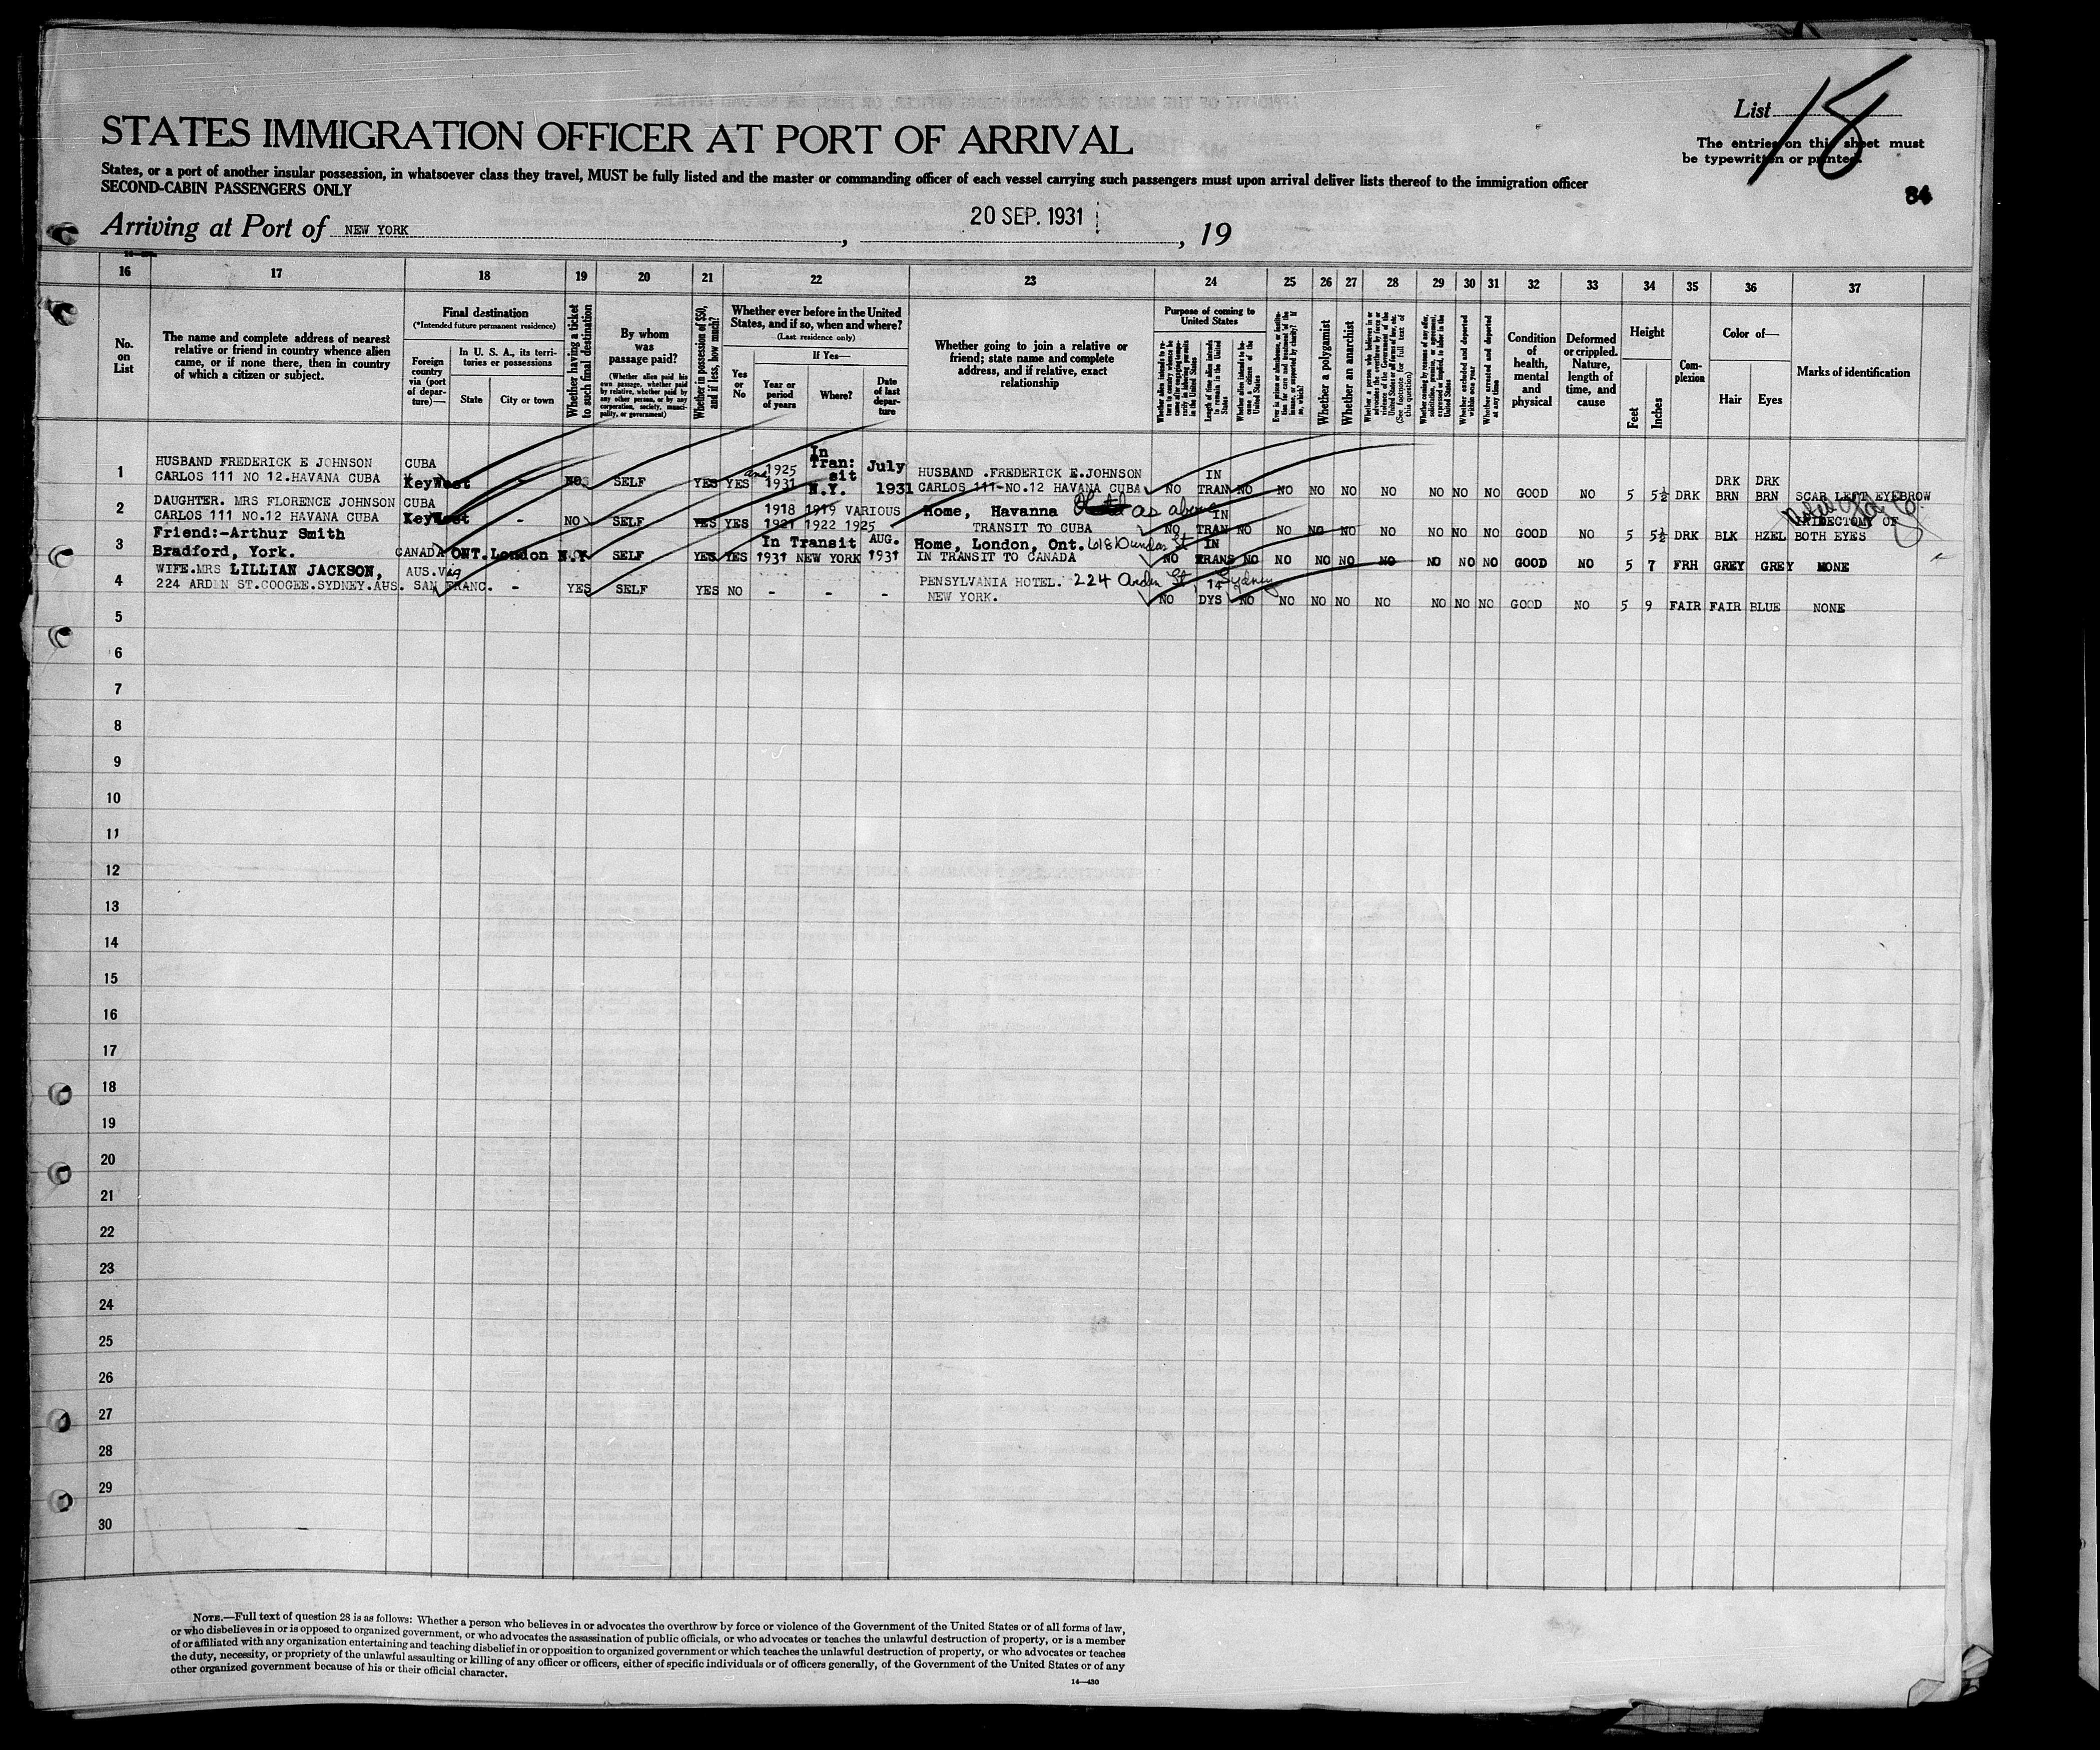 List 18
STATES IMMIGRATION OFFICER AT PORT OF ARRIVAL
The entries on this sheet must
be typewritten or printed.
States, or a port of another insular possession, in whatsoever class they travel, MUST be fully listed and the master or commanding officer of each vessel carrying such passengers must upon arrival deliver lists thereof to the immigration officer
SECOND-CABIN PASSENGERS ONLY
84
Arriving at Port of NEW YORK, 20 SEP. 1931, 19
16 17 18 19 20 21 22 23 24 25 26 27 28 29 30 31 32 33 34 35 36 37
No. on List
The name and complete address of nearest relative or friend in country whence alien came, or if none there, then in country of which a citizen or subject.
Final destination
(*Intended future permanent residence)
Foreign country via (port of departure)—
In U. S. A., its territories or possessions
State
City or town
Whether having a ticket to such final destination
By whom was passage paid?
(Whether alien paid his own passage, whether paid by relative, whether paid by any other person, or by any corporation, society, municipality, or government)
Whether in possession of $50, and if less, how much?
Whether ever before in the United States, and if so, when and where?
(Last residence only)
Yes or No
If Yes—
Year or period of years
Where?
Date of last departure
Whether going to join a relative or friend; state name and complete address, and if relative, exact relationship
Purpose of coming to United States
Length of time alien intends to remain in the United States
Whether alien intends to become a citizen of the United States
Whether a polygamist
Whether an anarchist
Whether excluded and deported within one year
Whether arrested and deported at any time
Condition of health, mental and physical
Deformed or crippled. Nature, length of time, and cause
Height
Feet
Inches
Complexion
Color of—
Hair
Eyes
Marks of identification
1 HUSBAND FREDERICK E JOHNSON CARLOS 111 NO 12.HAVANA CUBA CUBA KeyWest - NO SELF YES YES 1925 and 1931 In Tran: sit N.Y. July 1931 HUSBAND .FREDERICK E.JOHNSON CARLOS 111-NO.12 HAVANA CUBA NO IN TRAN NO NO NO NO NO NO NO NO GOOD NO 5 5½ DRK DRK BRN DRK BRN SCAR LEFT EYEBROW
2 DAUGHTER. MRS FLORENCE JOHNSON CARLOS 111 NO.12 HAVANA CUBA CUBA KeyWest - NO SELF YES YES 1918 1919 VARIOUS 1921 1922 1925 Home, Havanna as above TRANSIT TO CUBA NO IN TRAN NO NO NO NO NO NO NO NO GOOD NO 5 5½ DRK BLK HZEL IRIDECTOMY OF BOTH EYES
3 Friend:-Arthur Smith Bradford, York. CANADA ONT. London N.Y SELF YES YES In Transit 1931 NEW YORK AUG. 1931 Home, London, Ont. 618 Dundas St IN TRANSIT TO CANADA NO IN TRANS NO NO NO NO NO NO NO NO GOOD NO 5 7 FRH GREY GREY NONE
4 WIFE.MRS LILLIAN JACKSON, 224 ARDEN ST.COOGEE.SYDNEY.AUS. AUS.Via SAN FRANC. - YES SELF YES NO - - - PENSYLVANIA HOTEL. NEW YORK. 224 Arden St, Sydney NO 14 DYS NO NO NO NO NO NO NO NO GOOD NO 5 9 FAIR FAIR BLUE NONE
5
6
7
8
9
10
11
12
13
14
15
16
17
18
19
20
21
22
23
24
25
26
27
28
29
30
NOTE.—Full text of question 28 is as follows: Whether a person who believes in or advocates the overthrow by force or violence of the Government of the United States or of all forms of law,
or who disbelieves in or is opposed to organized government, or who advocates the assassination of public officials, or who advocates or teaches the unlawful destruction of property, or is a member
of or affiliated with any organization entertaining and teaching disbelief in or opposition to organized government or which teaches the unlawful destruction of property, or who advocates or teaches
the duty, necessity, or propriety of the unlawful assaulting or killing of any officer or officers, either of specific individuals or of officers generally, of the Government of the United States or of any
other organized government because of his or their official character.
14—430